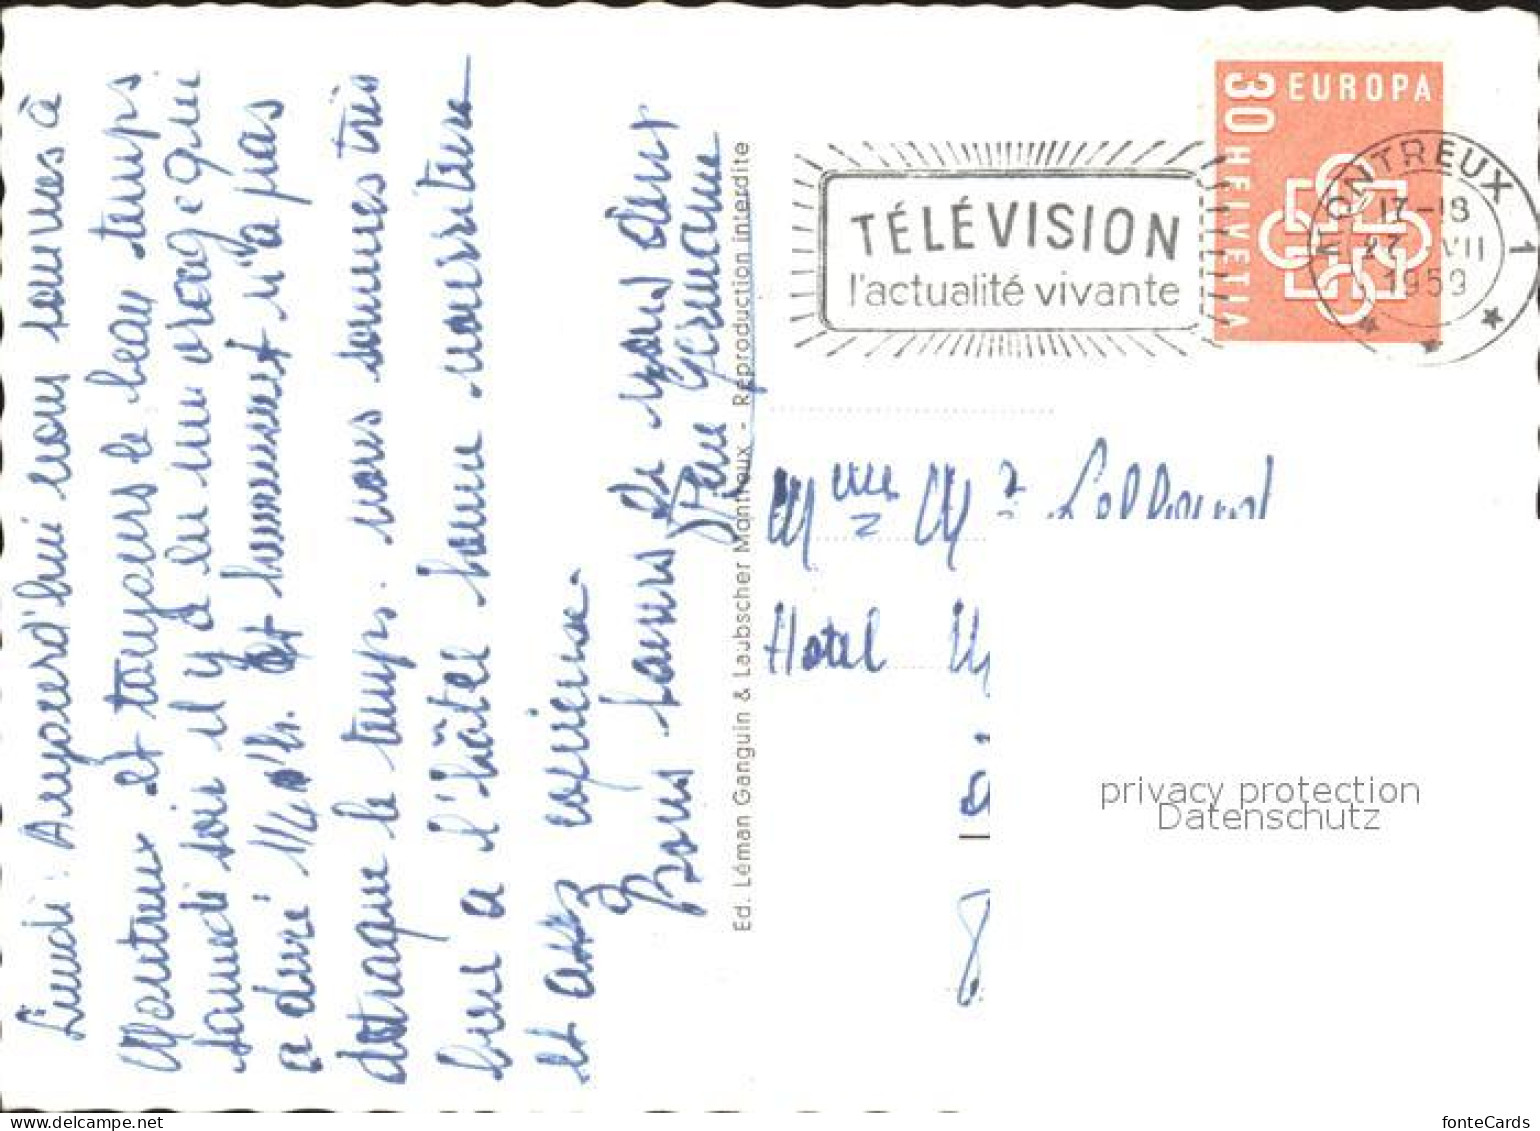 Lundi. Aujourd'hui nous sommes à
Montreux et toujours le beau temps.
samedi soir il y a eu un orage qui
a duré 1/4 d'h. et heureusement n'a pas
detraqué le temps. nous sommes très
bien a l'hôtel bonne nourriture
et assez copieuse.
Bons baisers de vous deux
Germaine
Ed. Léman Ganguin & Laubscher Montreux - Reproduction interdite
TÉLÉVISION
l'actualité vivante
30 EUROPA
HELVETIA
MONTREUX 1
17-18
27. VII
1959
Mme Mr
Hotel
privacy protection
Datenschutz
delcampe.net
fonteCards